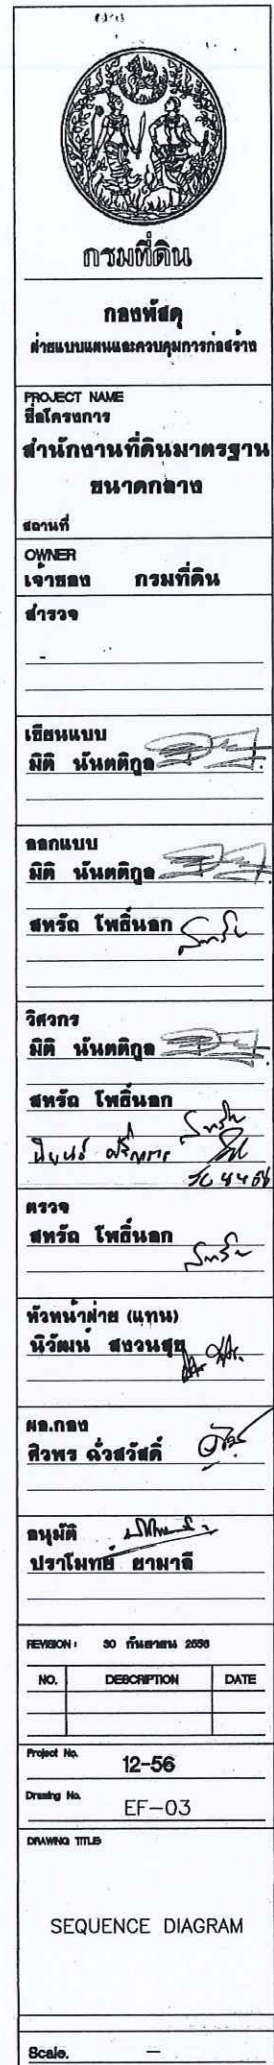 กรมที่ดิน
กองพัสดุ
ฝ่ายแบบแผนและควบคุมการก่อสร้าง
PROJECT NAME
ชื่อโครงการ
สำนักงานที่ดินมาตรฐาน
ขนาดกลาง
สถานที่
OWNER
เจ้าของ กรมที่ดิน
สำรวจ
-
เขียนแบบ
มิติ นันตติกูล
ออกแบบ
มิติ นันตติกูล
สหรัถ โพธิ์นอก
วิศวกร
มิติ นันตติกูล
สหรัถ โพธิ์นอก
ตรวจ
สหรัถ โพธิ์นอก
หัวหน้าฝ่าย (แทน)
นิวัฒน์ สงวนสุข
ผอ.กอง
ศิวพร ฉั่วสวัสดิ์
อนุมัติ
ปราโมทย์ ยามาลี
REVISION : 30 กันยายน 2556
NO. DESCRIPTION DATE
Project No.
12-56
Drawing No.
EF-03
DRAWING TITLE
SEQUENCE DIAGRAM
Scale. —